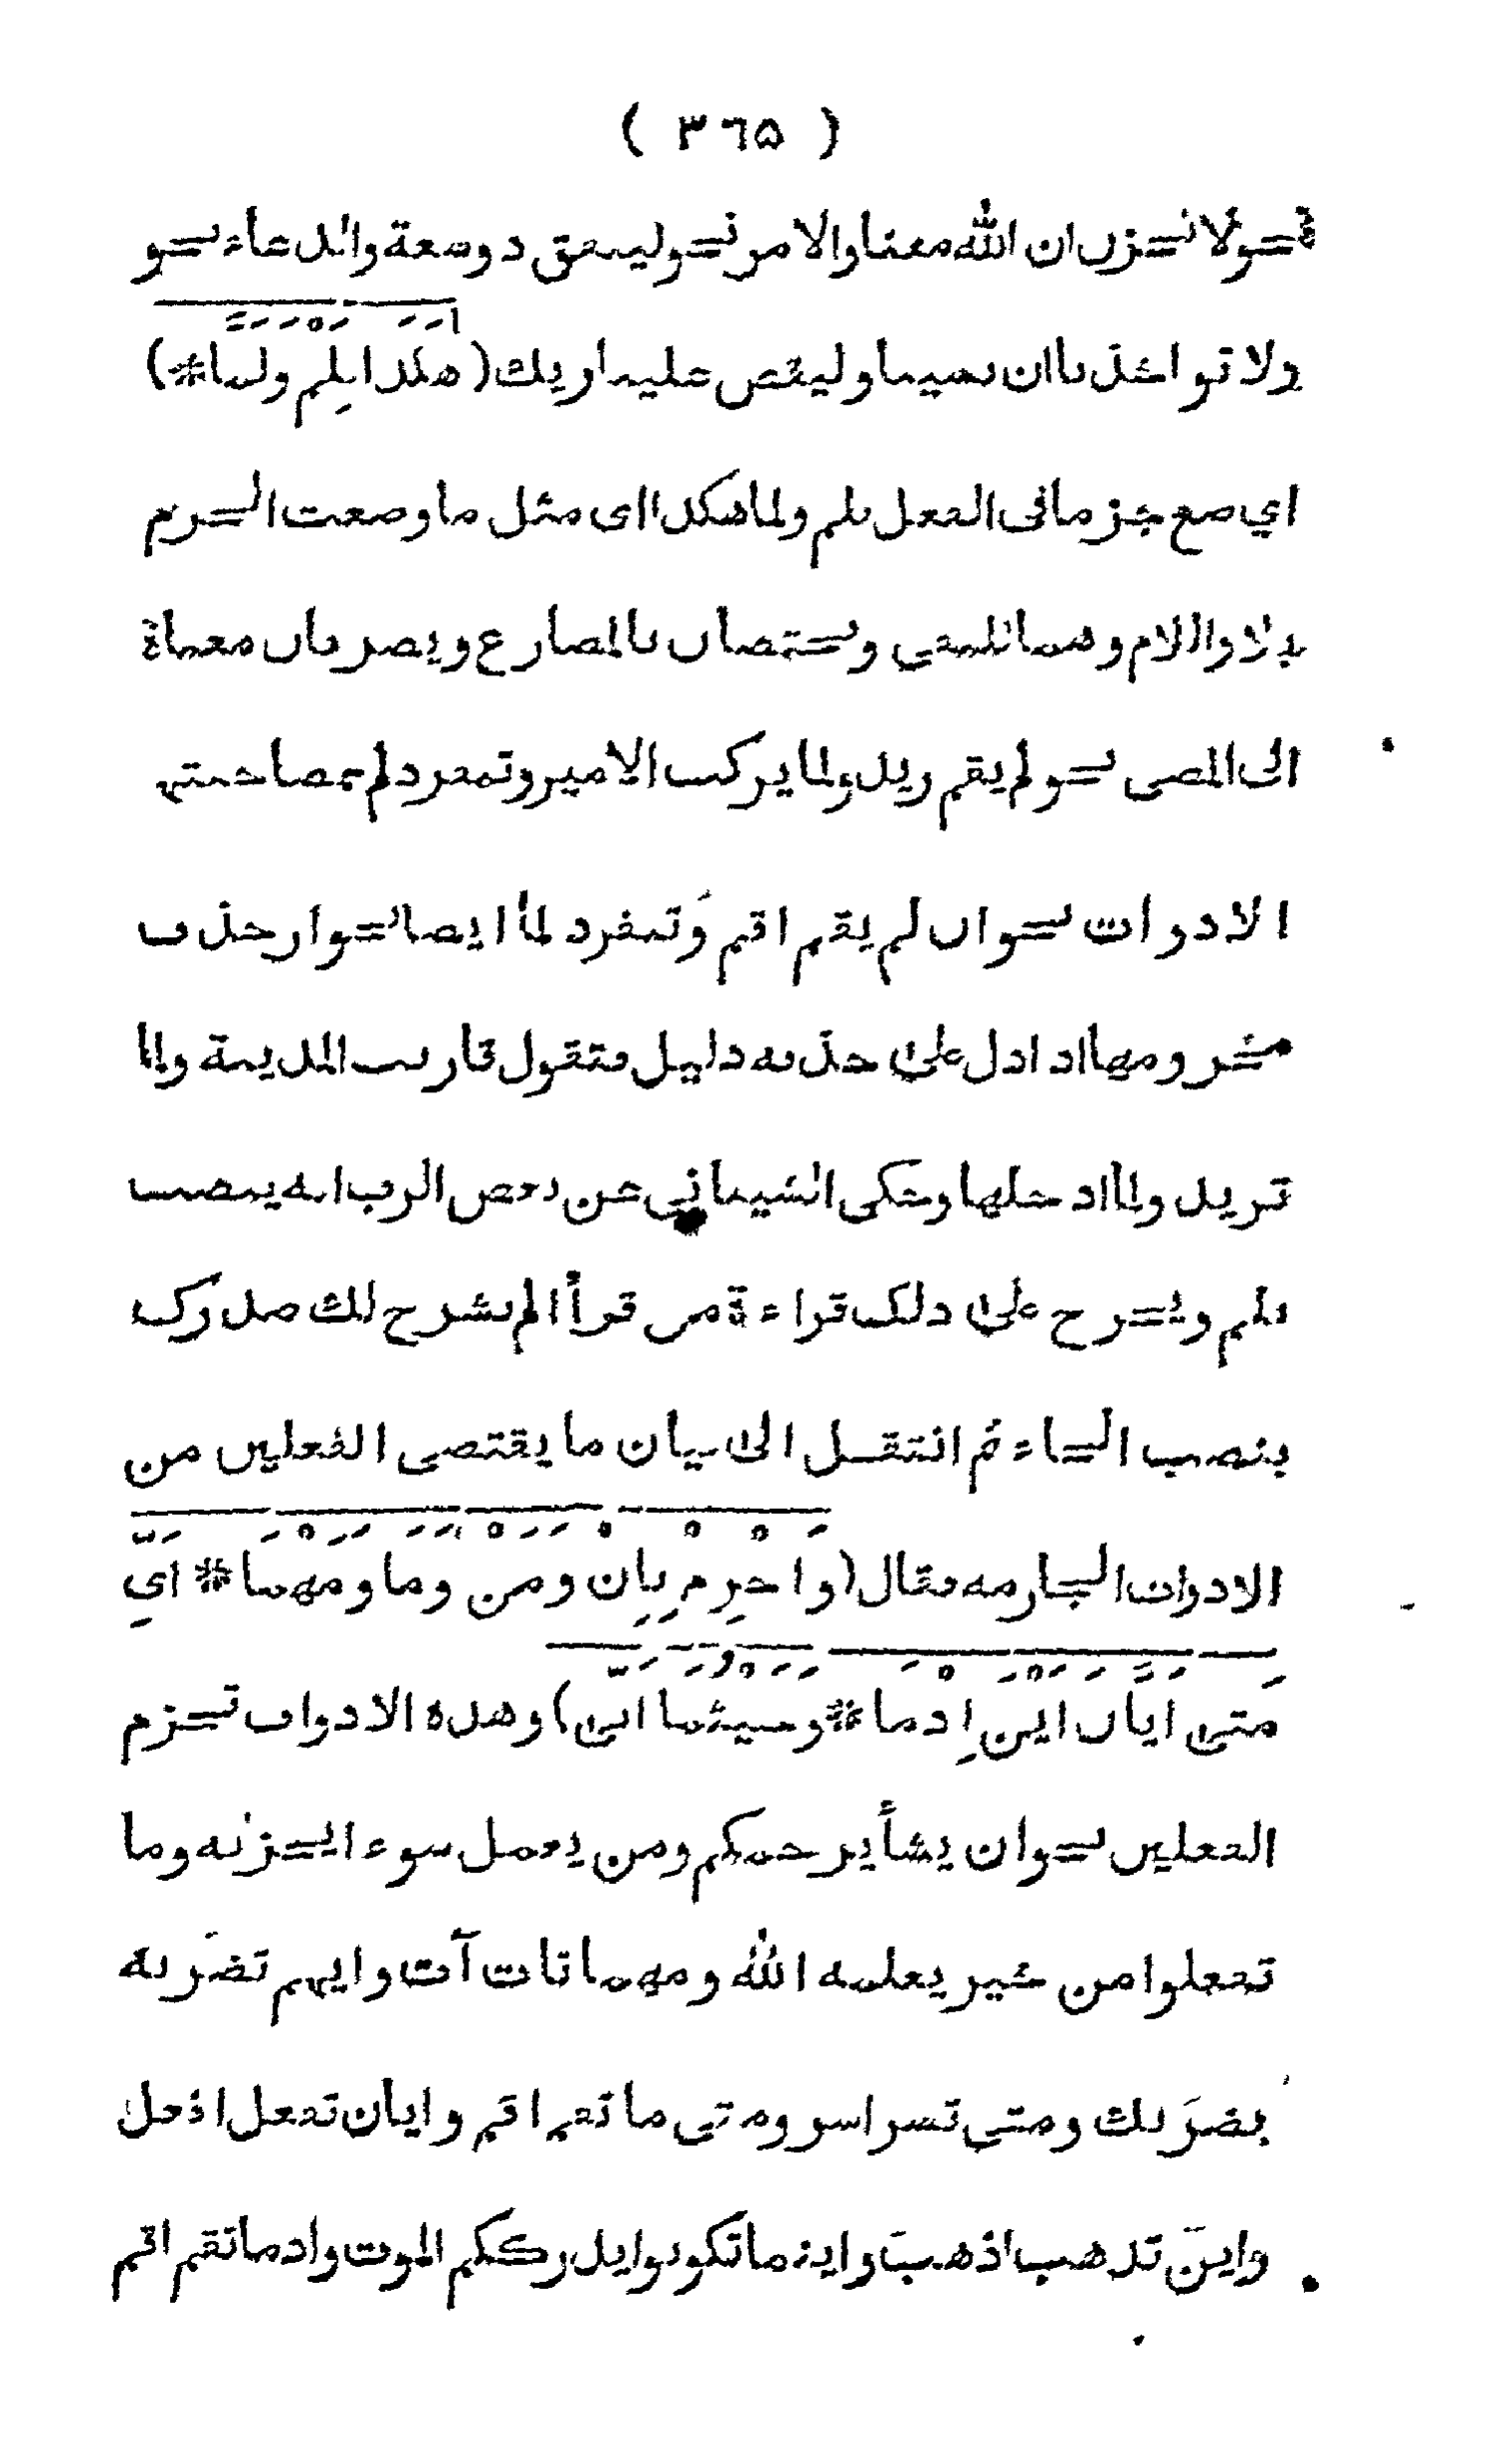 ( ٣٦٥ )
نحو لا تحزن ان الله معنا والامر نحو لينفق ذو سعة والدعاء نحو
ولا تؤاخذنا ان نسينا وليقض علينا ربك (هٰكَذا بِلَمْ وَلَمَّا *)
اي ضع جزما فى الفعل بلم ولما هكذا اى مثل ما وضعت الجزم
بلا واللام وهما للنفي ويختصان بالمضارع ويصرفان معناه
الى المضى نحو لم يقم زيد ولما يركب الامير وتنفرد لم بمصاحبتها
الادوات نحو ان لم يقم اقم وَتنفرد لما ايضا بجواز حذف
مجزومها اذا دل على حذفه دليل فتقول قاربت المدينة ولما
تريد ولما ادخلها وحكى الشيبانى عن بعض العرب انه ينصب
بلم ويخرج على ذلك قراءة من قرأ الم نشرح لك صدرك
بنصب الحاء ثم انتقل الى بيان ما يقتضى الفعلين من
الادوات الجازمه فقال (وَاجْزِمْ بِإِنْ وَمَنْ وَمَا وَمَهْمَا * اَيٍّ
مَتَى اَيَّانَ اَيْنَ إِذْمَا * وَحَيْثُمَا اَنَّى) وهذه الادوات تجزم
الفعلين نحو ان يشأ يرحمكم ومن يعمل سوءا يجز به وما
تفعلوا من خير يعلمه الله ومهما تأت آت وايهم تضرَبه
يضرَبك ومتى تسر اسر ومتى ما تقم اقم وايان تفعل افعل
واين تذهب اذهب واينما تكونوا يدرككم الموت واذما تقم اقم